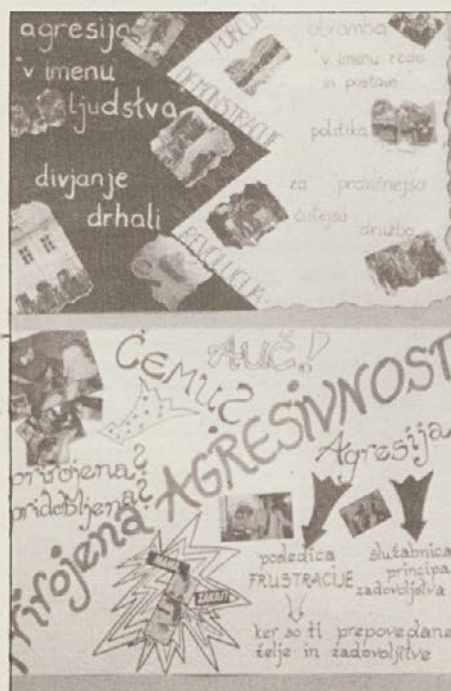 agresija
v imenu
ljudstva
divjanje
drhali
DEMONSTRACIJE
REVOLUCIJA
obramba
v imenu reda
in postave
politika
za pravičnejšo
čistejšo
družbo
ČEMU?
AUČ!
prirojena?
pridobljena?
Prirojena AGRESIVNOST
Agresija
posledica
FRUSTRACIJE
služabnica
principa
zadovoljstva
ker so ti prepovedane
želje in zadovoljitve
ZAKAJ?